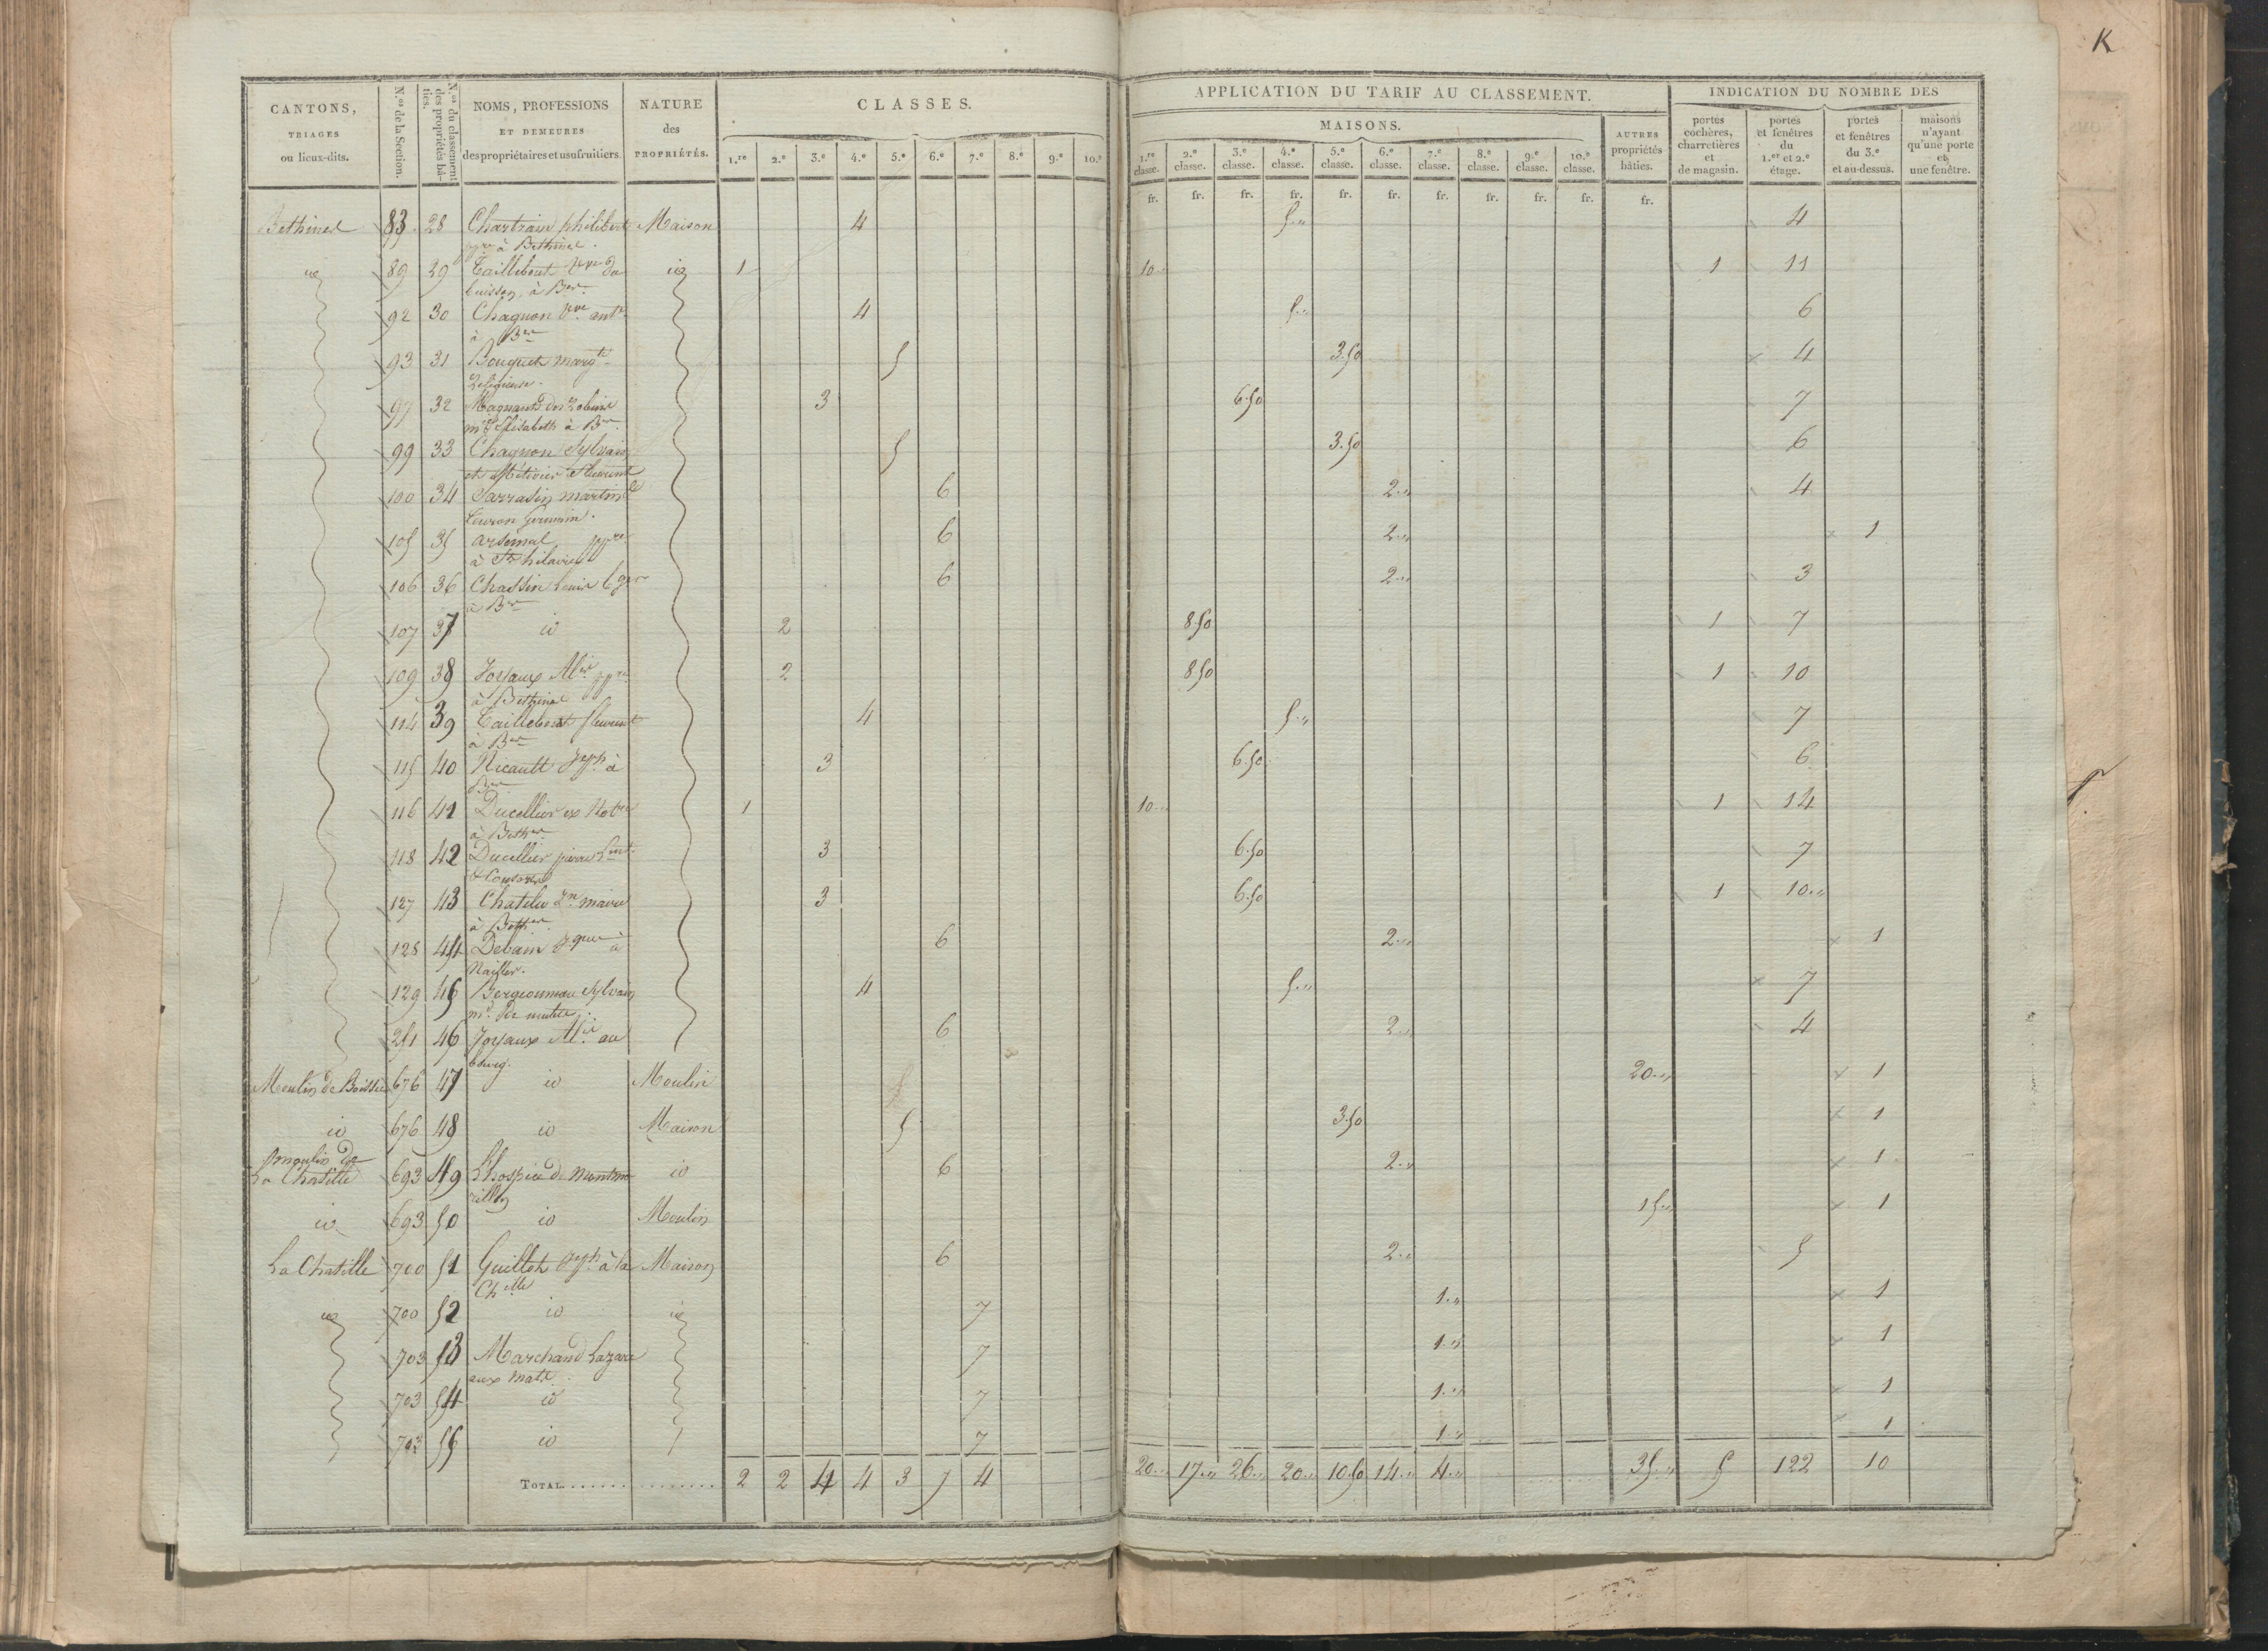 K
CANTONS,
TRIAGES
ou lieux-dits.
N.os de la Section.
N.os du classement des propriétés bâties.
NOMS, PROFESSIONS
ET DEMEURES
des propriétaires et usufruitiers.
NATURE
des
PROPRIÉTÉS.
CLASSES.
1.re 2.e 3.e 4.e 5.e 6.e 7.e 8.e 9.e 10.e
APPLICATION DU TARIF AU CLASSEMENT.
MAISONS.
1.re classe. 2.e classe. 3.e classe. 4.e classe. 5.e classe. 6.e classe. 7.e classe. 8.e classe. 9.e classe. 10.e classe.
AUTRES
propriétés
bâties.
INDICATION DU NOMBRE DES
portes
cochères,
charretières
et
de magasin.
portes
et fenêtres
du
1.er et 2.e
étage.
portes
et fenêtres
du 3.e
et au-dessus.
maisons
n'ayant
qu'une porte
et
une fenêtre.
fr. fr. fr. fr. fr. fr. fr. fr. fr. fr. fr.
Bethines 83 28 Chartrain philibert Maison 4 5.,, 4
à Bethines.
id 89 29 Taillebout Vve du id 1 10.,, 1 11
buisson, à Bes
92 30 Chagnon Vve ant. 4 5.,, 6
à Bes
93 31 Bouquet marg.te 5 3.50 4
Religieuse.
97 32 Magnant des 3 6.50 7
Elisabeth à Bes
99 33 Chagnon Sylvain 5 3.50 6
et Métivier
100 34 Sarrasin martin 6 2.,, 4
105 35 arsonnal ppre 6 2.,, 1
à St hilaire
106 36 Chassin Louis 6 2.,, 3
à Bes
107 37 id 2 8.50 1 7
109 38 Joyaux ppre 2 8.50 1 10
à Bethines
114 39 Taillebout 4 5.,, 7
à Bes
115 40 Nicault Jph à 3 6.50 6
Bes
116 41 Ducellier ex Not.re 1 10.,, 1 14
à Beth.es
118 42 Ducellier pierre 3 6.50 7
127 43 Chatelu maire 3 6.50 1 10.,,
à Beth.es
128 44 Debain à 6 2.,, 1
129 45 Bergeonneau Sylvain 4 5.,, 7
251 46 Joyaux au 6 2.,, 4
bourg.
Moulin de 676 47 id Moulin 20.,, 1
id 676 48 id Maison 5 3.50 1
moulin de
La Chatille 693 49 L'hospice de Montmo id 6 2.,, 1
rillon
id 693 50 id Moulin 15.,, 1
La Chatille 700 51 Guillot Jph à la Maison 6 2.,, 5
Ch.ille
id 700 52 id id 7 1.,, 1
703 53 Marchand Lazare 7 1.,, 1
aux
703 54 id 7 1.,, 1
703 55 id 7 1.,, 1
TOTAL 2 2 4 4 3 7 4 20.,, 17.,, 26.,, 20.,, 10.50 14.,, 4.,, 35.,, 5 122 10